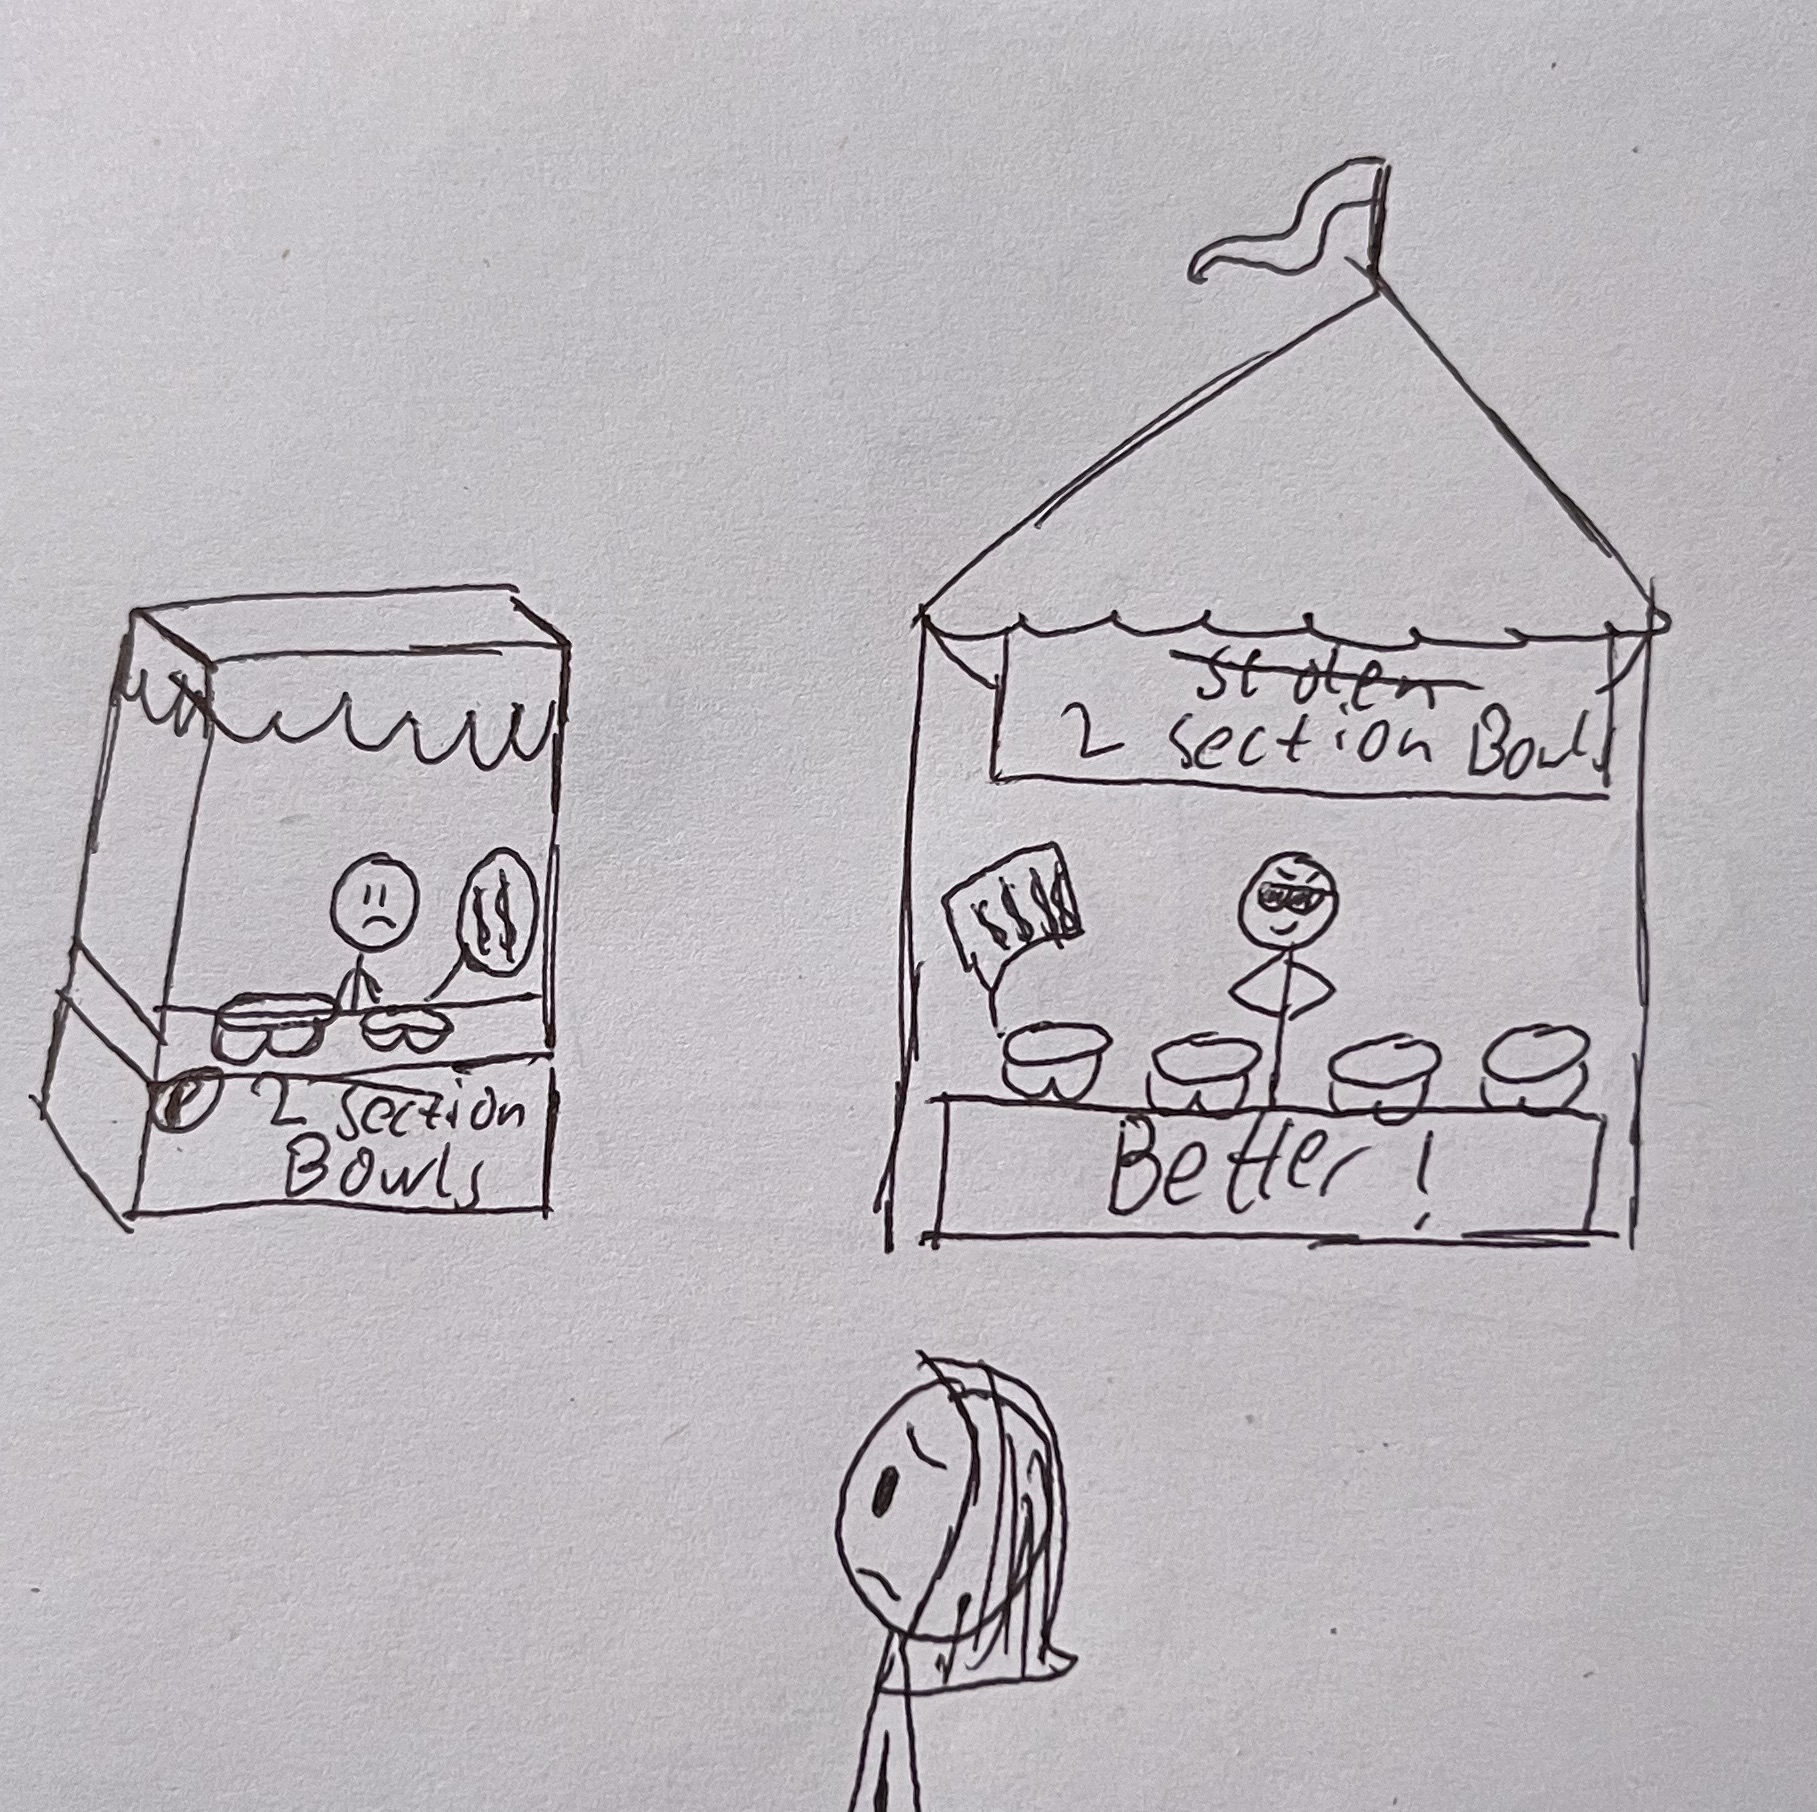 $$
Ⓟ 2 section
Bowls
Stolen
2 section Bowls
$$$$
Better!